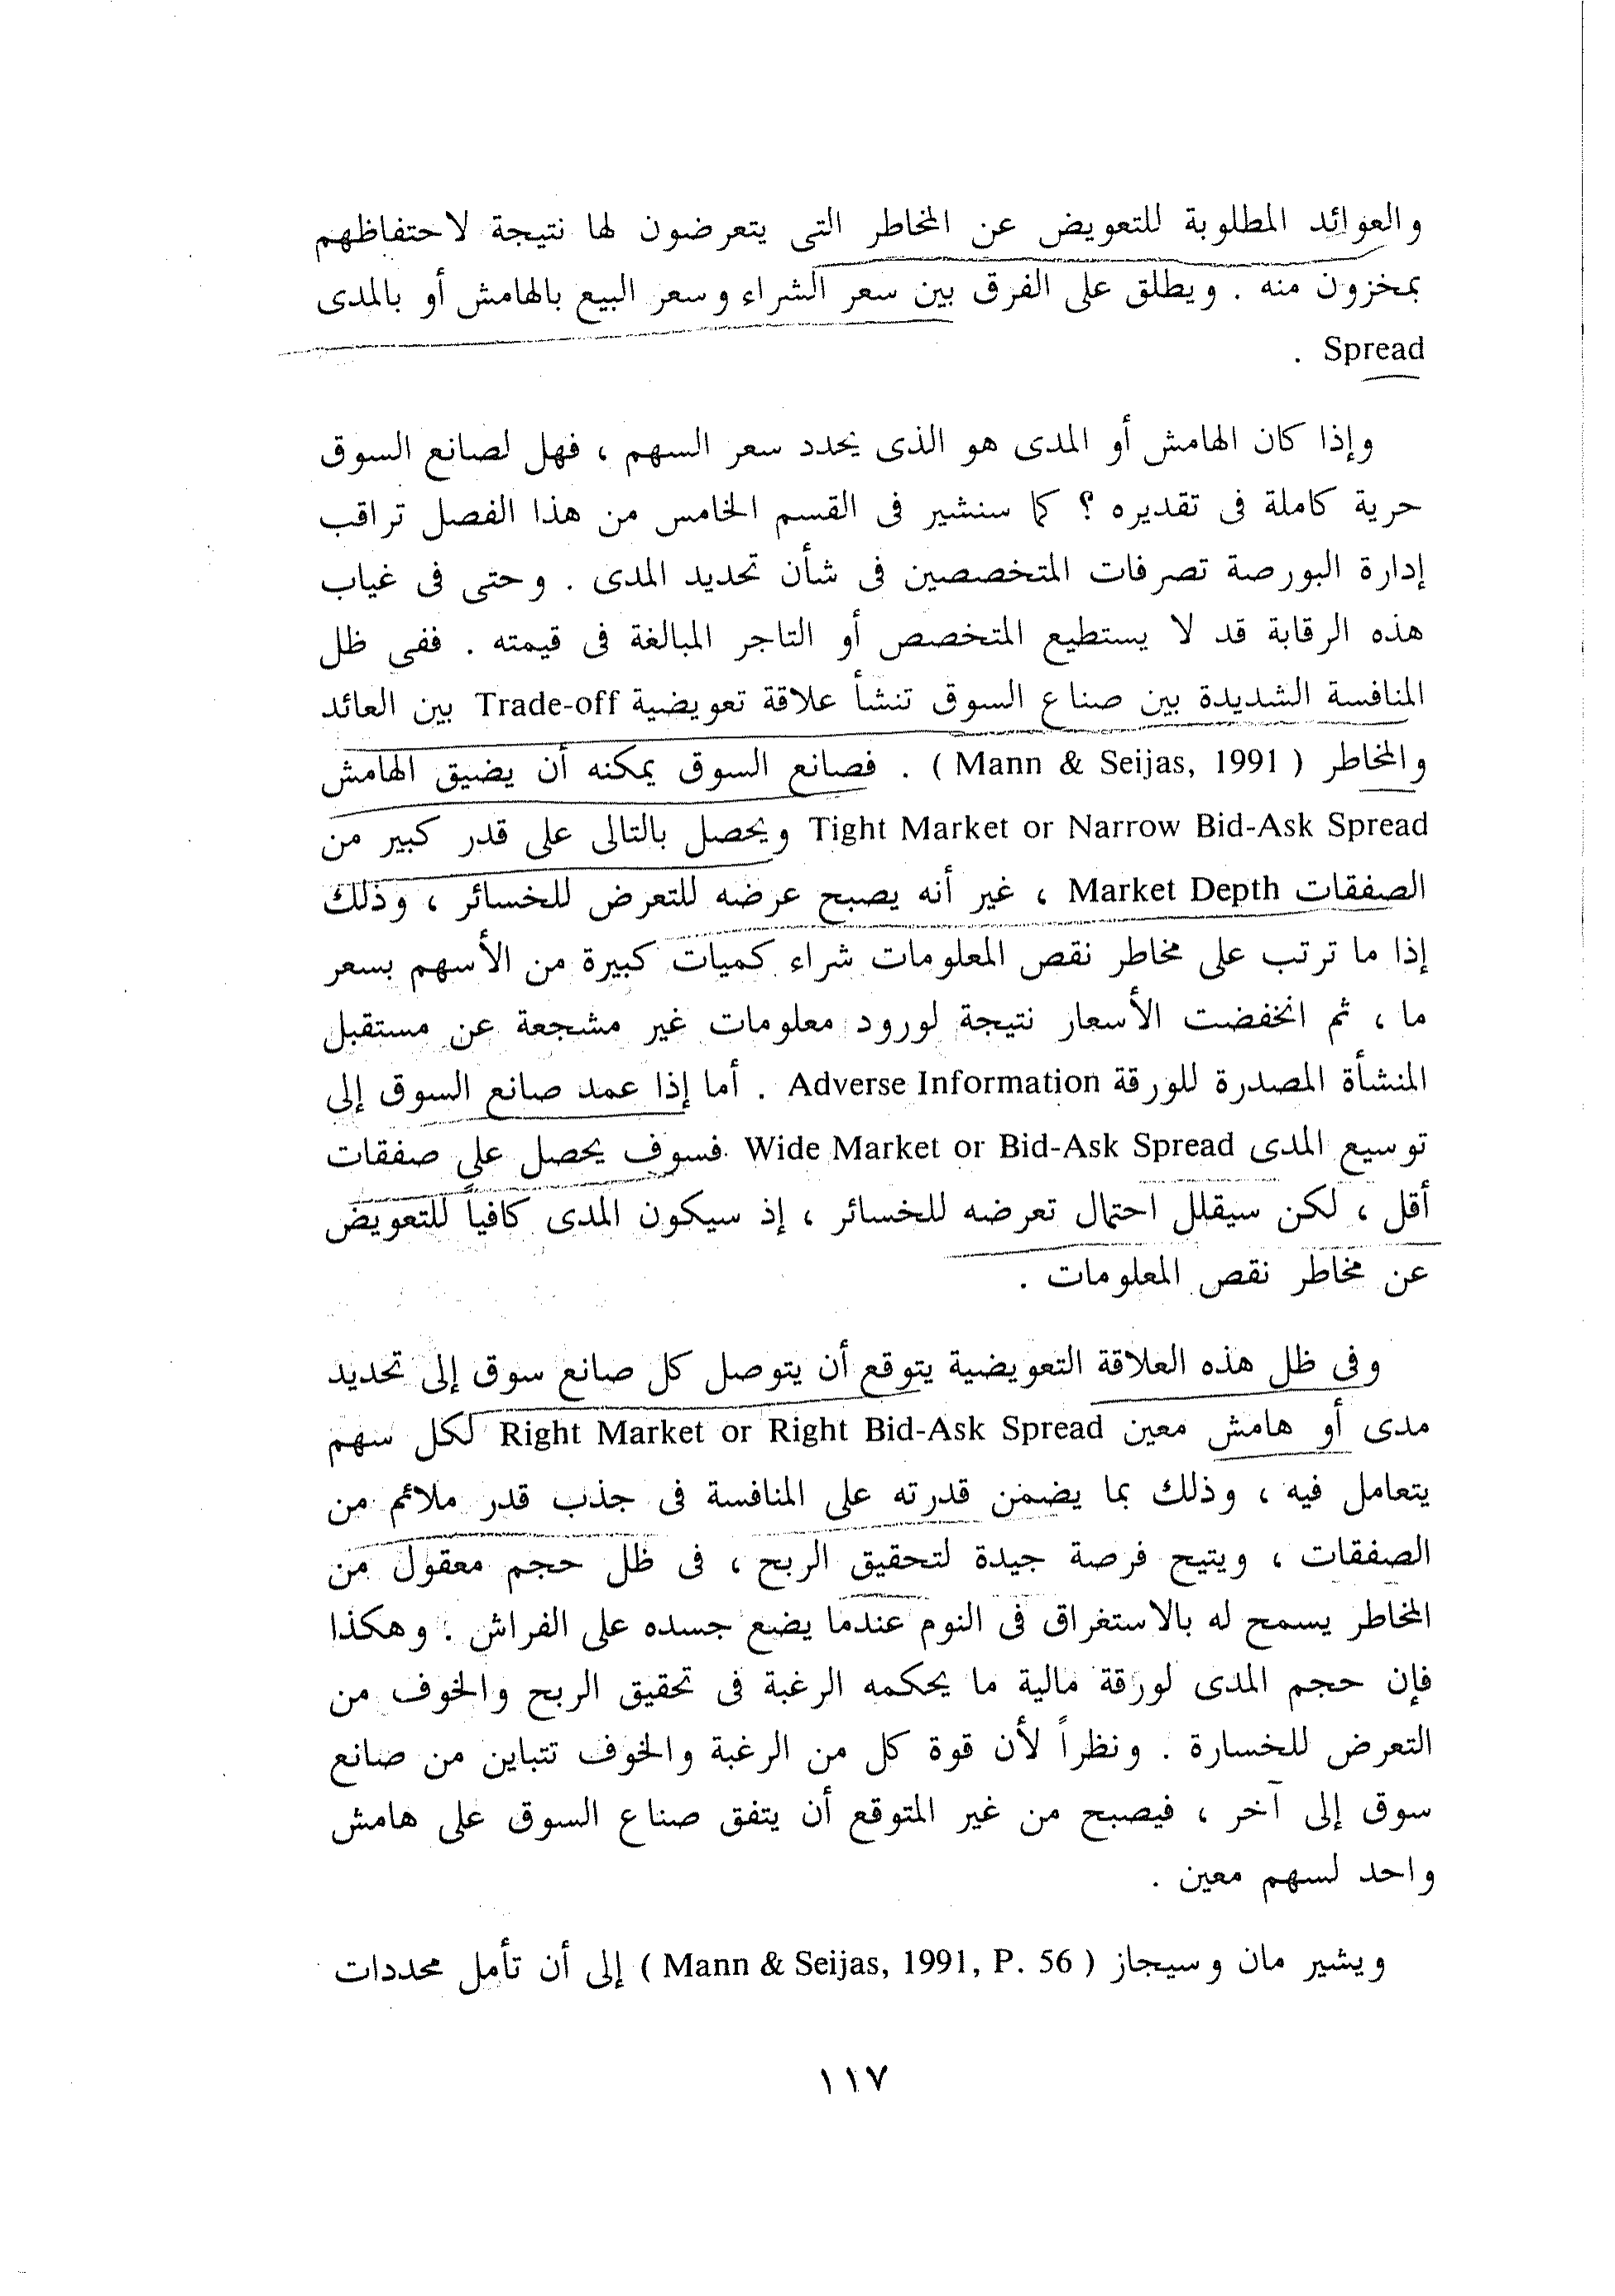 والعوائد المطلوبة للتعويض عن المخاطر التى يتعرضون لها نتيجة لاحتفاظهم
بمخزون منه . ويطلق على الفرق بين سعر الشراء وسعر البيع بالهامش أو بالمدى
Spread .
وإذا كان الهامش أو المدى هو الذى يحدد سعر السهم ، فهل لصانع السوق
حرية كاملة فى تقديره ؟ كما سنشير فى القسم الخامس من هذا الفصل تراقب
إدارة البورصة تصرفات المتخصصين فى شأن تحديد المدى . وحتى فى غياب
هذه الرقابة قد لا يستطيع المتخصص أو التاجر المبالغة فى قيمته . ففى ظل
المنافسة الشديدة بين صناع السوق تنشأ علاقة تعويضية Trade-off بين العائد
والمخاطر ( Mann & Seijas, 1991 ) . فصانع السوق يمكنه أن يضيق الهامش
Tight Market or Narrow Bid-Ask Spread ويحصل بالتالى على قدر كبير من
الصفقات Market Depth ، غير أنه يصبح عرضه للتعرض للخسائر ، وذلك
إذا ما ترتب على مخاطر نقص المعلومات شراء كميات كبيرة من الأسهم بسعر
ما ، ثم انخفضت الأسعار نتيجة لورود معلومات غير مشجعة عن مستقبل
المنشأة المصدرة للورقة Adverse Information . أما إذا عمد صانع السوق إلى
توسيع المدى Wide Market or Bid-Ask Spread فسوف يحصل على صفقات
أقل ، لكن سيقلل احتمال تعرضه للخسائر ، إذ سيكون المدى كافياً للتعويض
عن مخاطر نقص المعلومات .
وفى ظل هذه العلاقة التعويضية يتوقع أن يتوصل كل صانع سوق إلى تحديد
مدى أو هامش معين Right Market or Right Bid-Ask Spread لكل سهم
يتعامل فيه ، وذلك بما يضمن قدرته على المنافسة فى جذب قدر ملائم من
الصفقات ، ويتيح فرصة جيدة لتحقيق الربح ، فى ظل حجم معقول من
المخاطر يسمح له بالاستغراق فى النوم عندما يضع جسده على الفراش . وهكذا
فإن حجم المدى لورقة مالية ما يحكمه الرغبة فى تحقيق الربح والخوف من
التعرض للخسارة . ونظراً لأن قوة كل من الرغبة والخوف تتباين من صانع
سوق إلى آخر ، فيصبح من غير المتوقع أن يتفق صناع السوق على هامش
واحد لسهم معين .
ويشير مان وسيجاز ( Mann & Seijas, 1991, P. 56 ) إلى أن تأمل محددات
١١٧